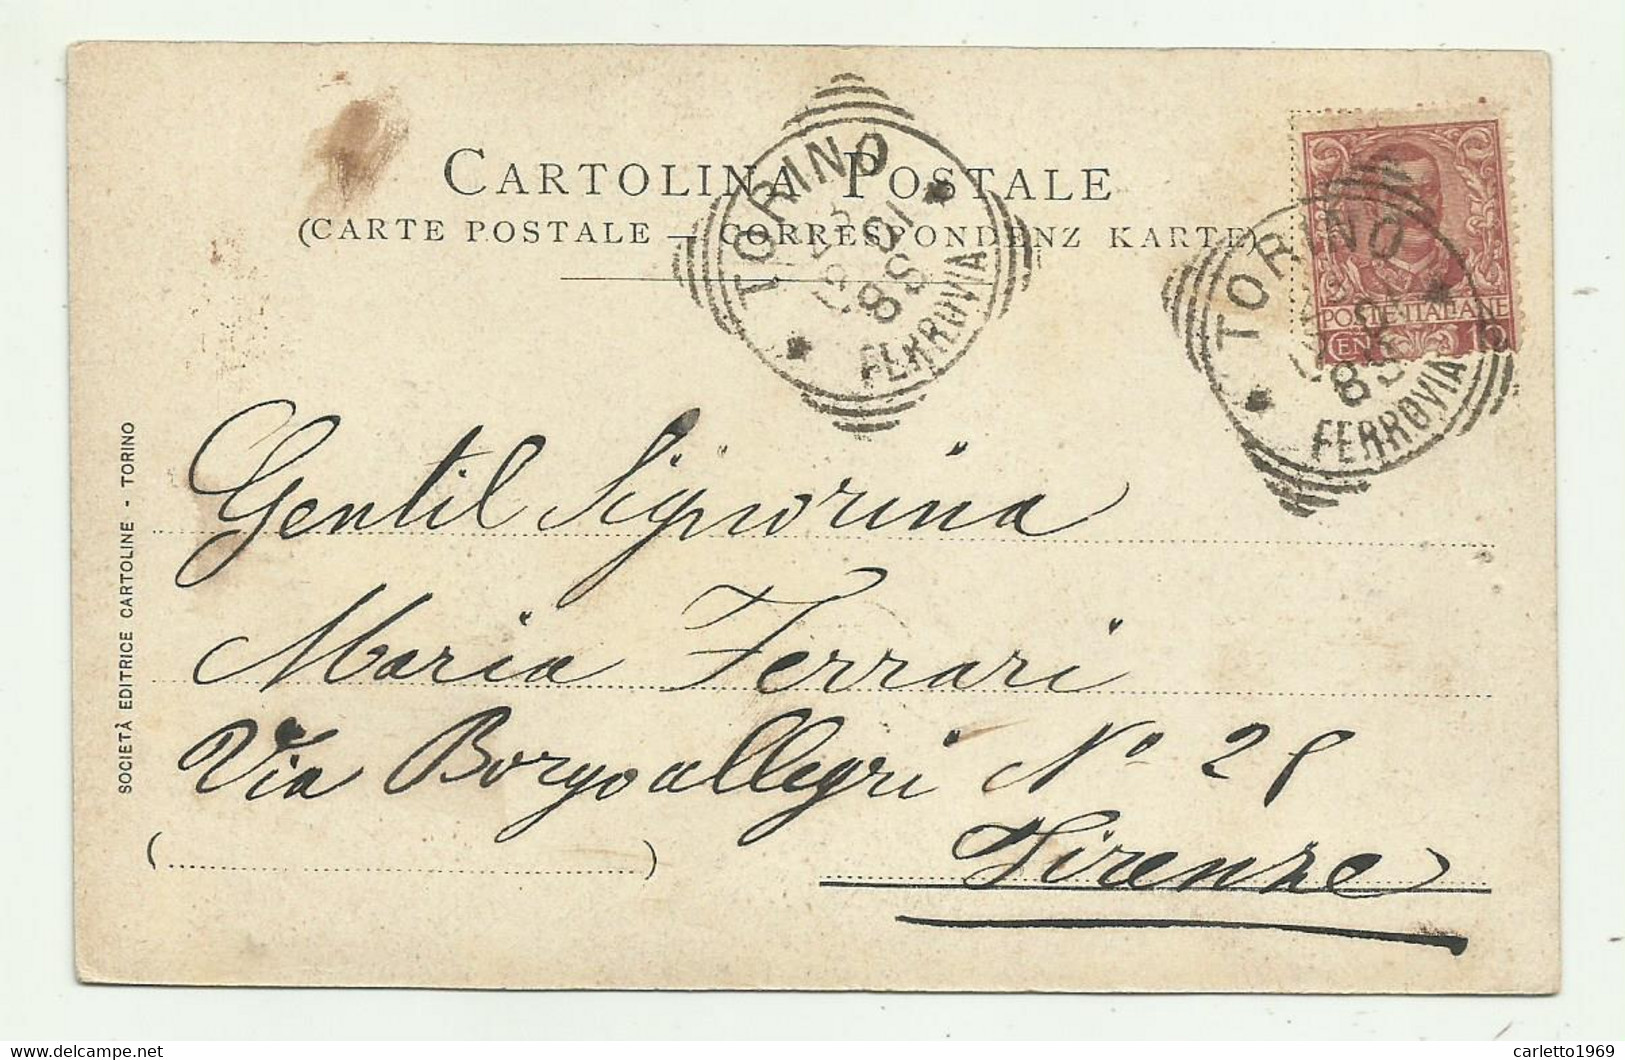 CARTOLINA POSTALE
(CARTE POSTALE — CORRESPONDENZ KARTE)
TORINO
8S
FERROVIA
POSTE·ITALIANE
TORINO
8S
FERROVIA
Gentil Signorina
Maria Ferrari
Via Borgoallegri Nº 28
Firenze
SOCIETÀ EDITRICE CARTOLINE - TORINO
delcampe.net
carletto1969